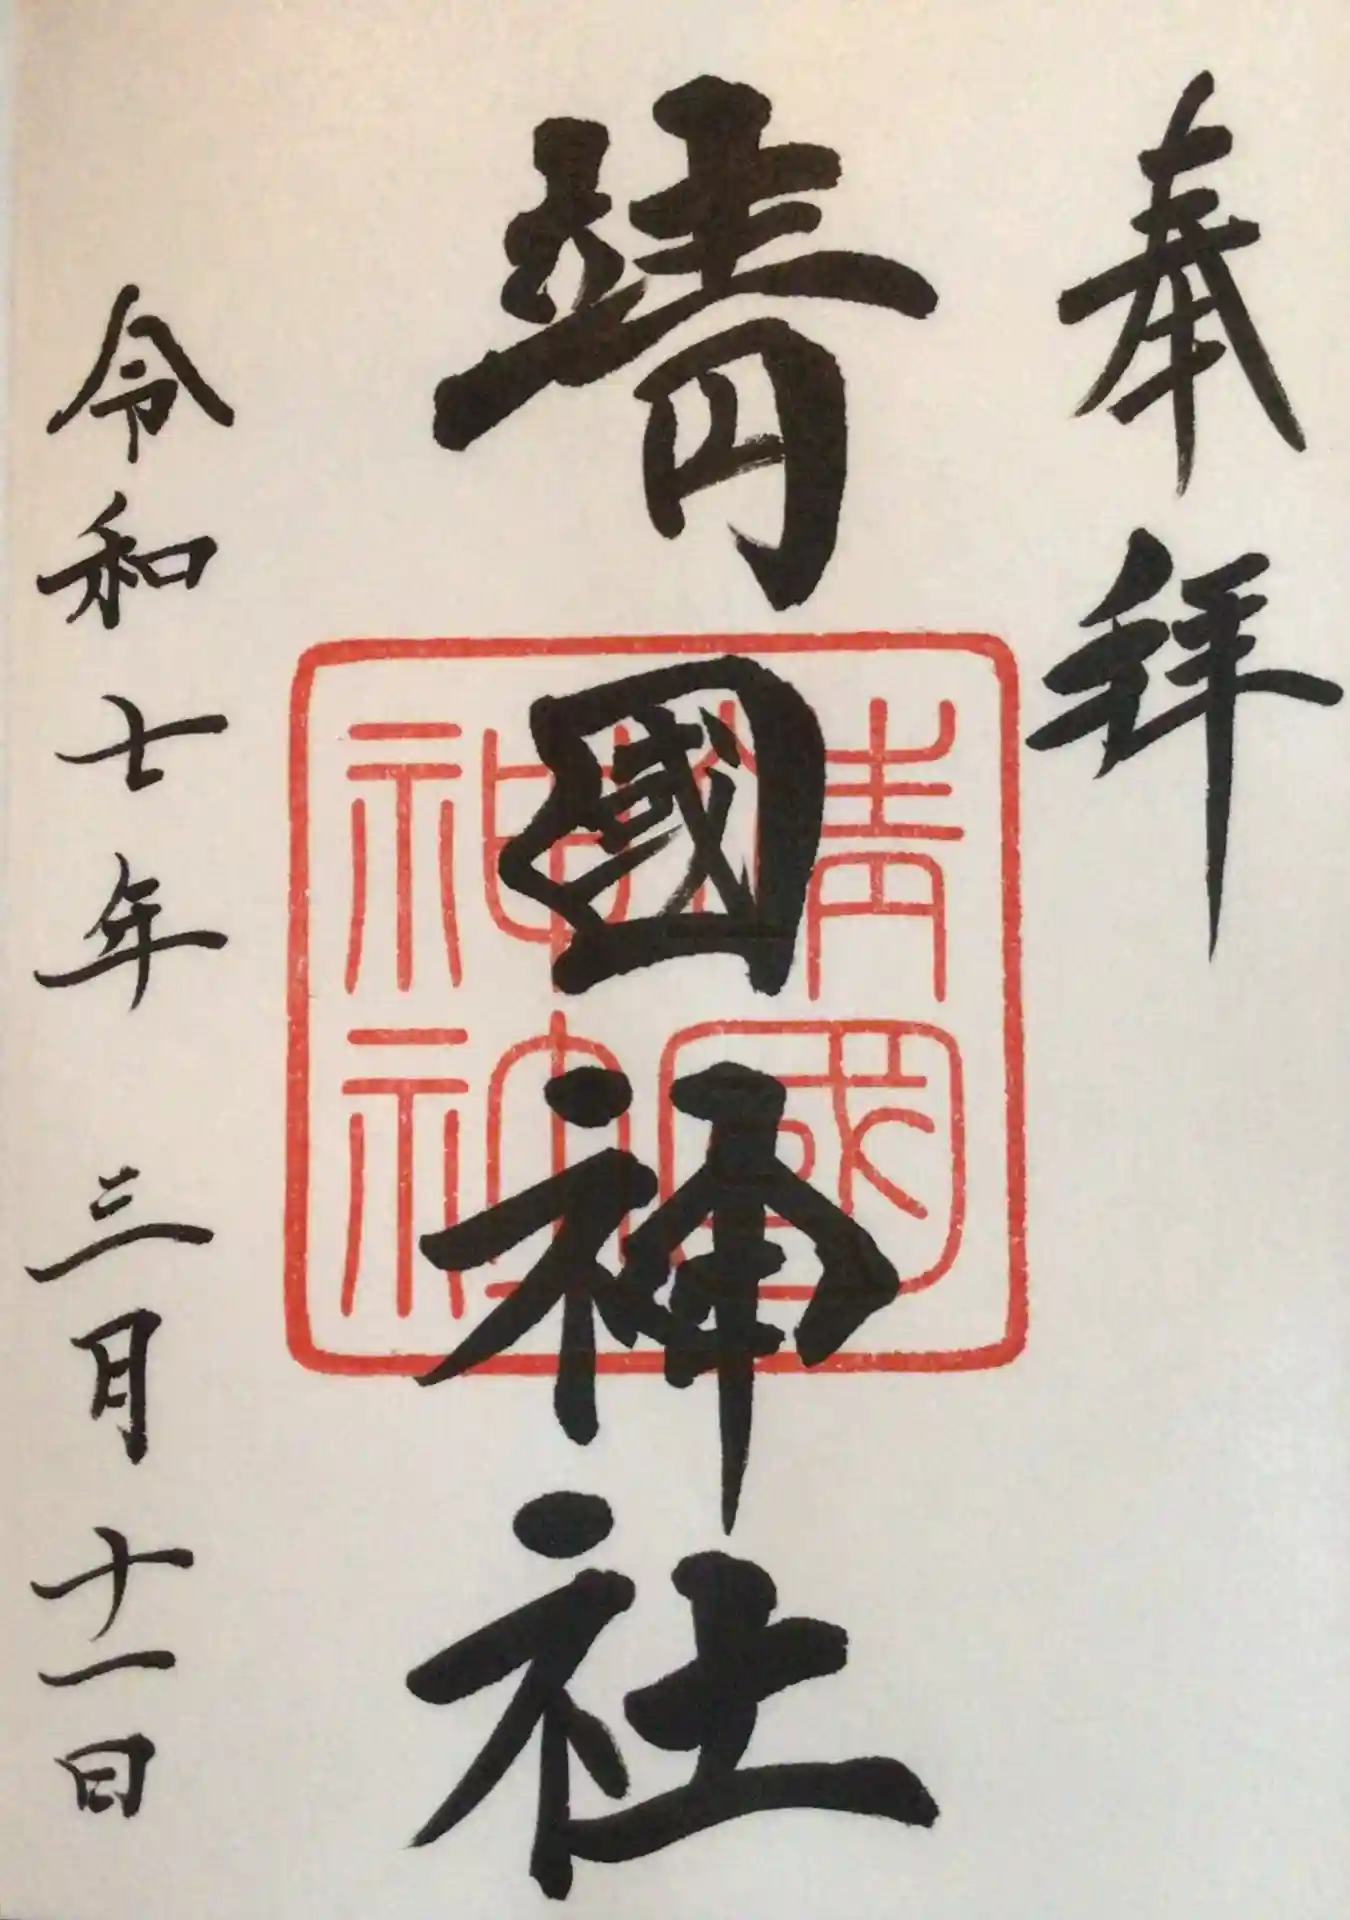 奉拝
靖國神社
令和七年 三月十一日
靖國
神社